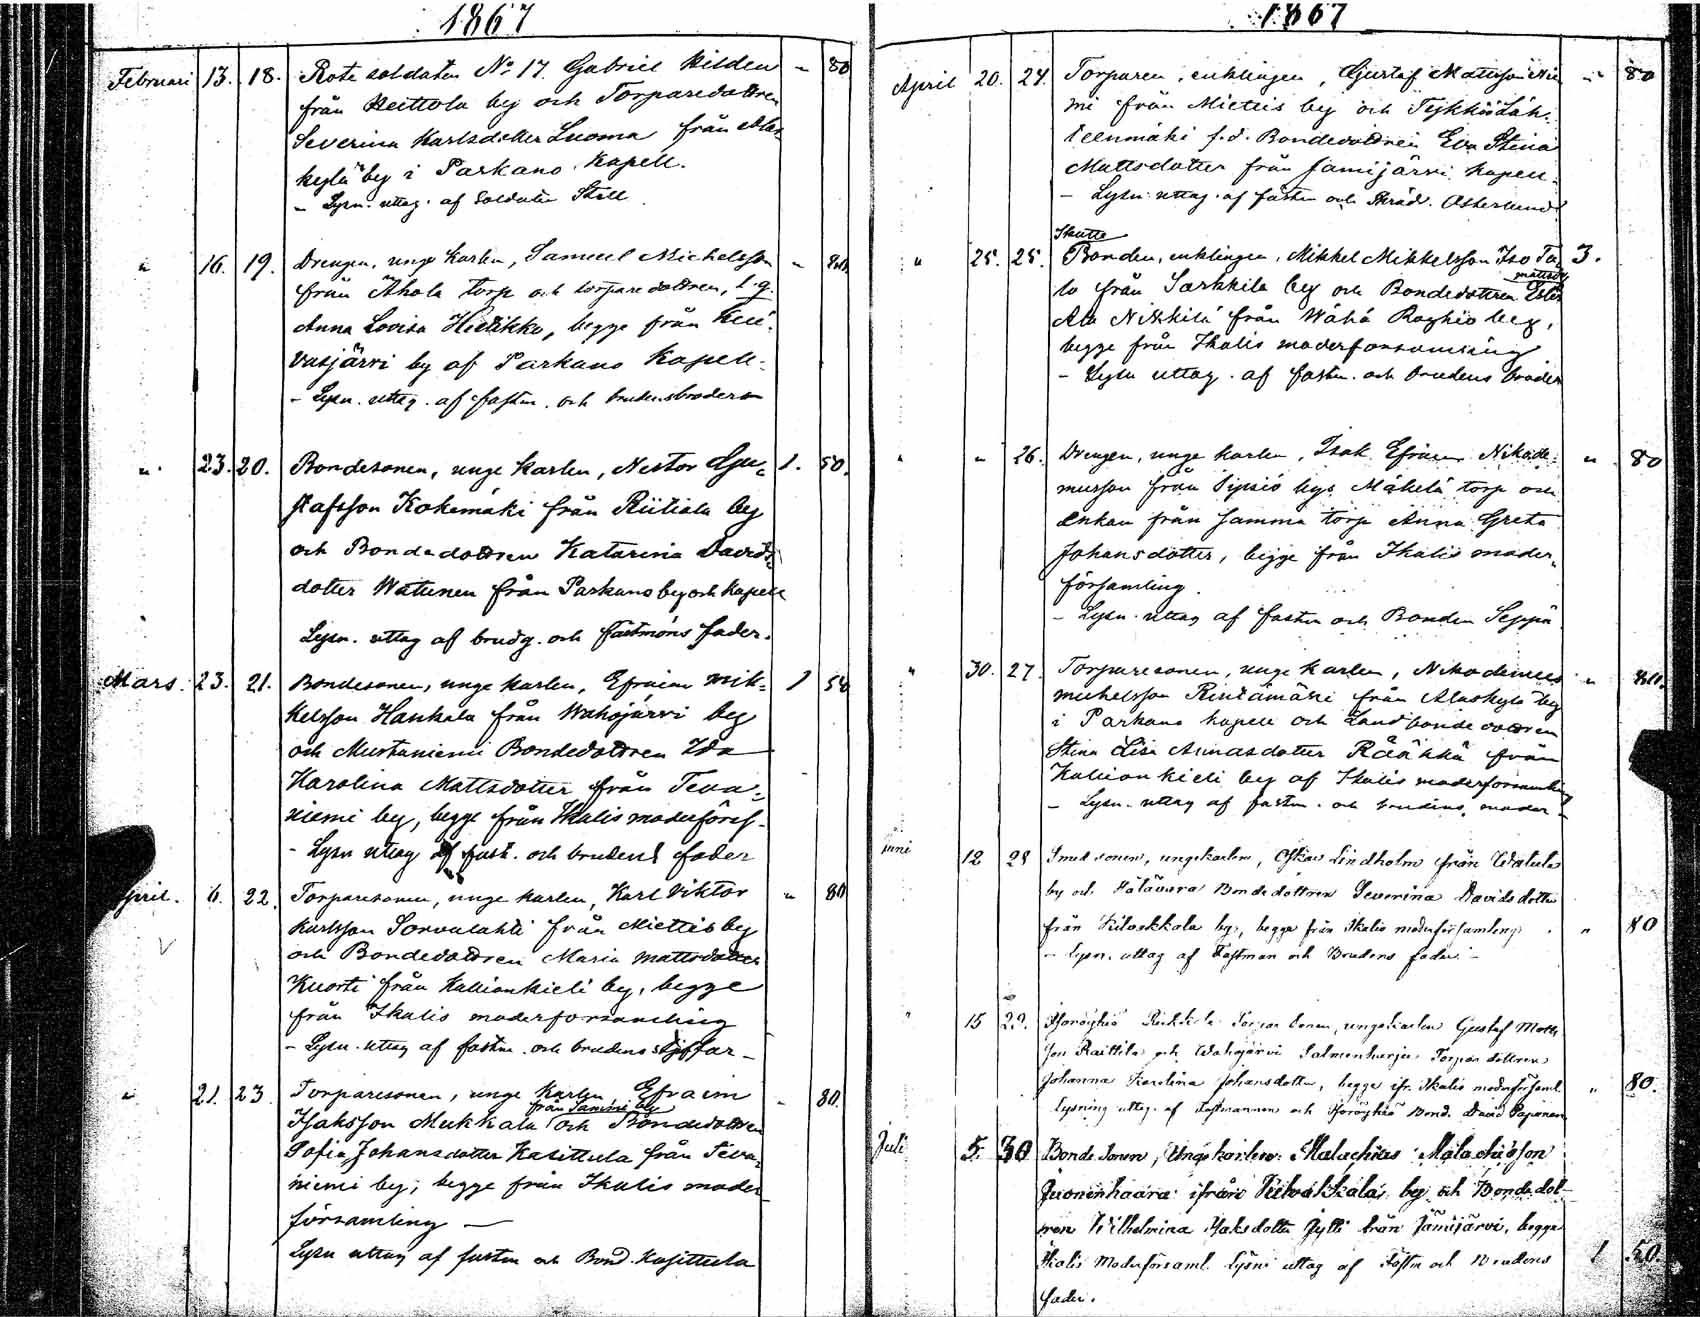 1867
Februari 13. 18. Rote soldaten No 17 Gabriel Hilden " 80
från Heittola by och Torparedottren
Severina Karlsdotter Luoma från Alas
kylä by i Parkano Kapell.
- Lysn. uttag. af Soldaten Ståll
" 16. 19. Drengen, unge karlen, Samuel Michelsson " 80.
från Ahola torp och torparedottren, l.q.
Anna Lovisa Hietikko, begge från Kui-
vasjärvi by af Parkano Kapell.
- Lysn. uttag. af fastm. och brudensbroder
" 23. 20. Bondesonen, unge karlen, Nestor Gu- 1. 50.
stafsson Kokemäki från Riitiala by
och Bondedottren Katarina Davids
dotter Watunen från Parkano by och kapell
Lysn. uttag af brudg. och fästmöns fader.
Mars. 23. 21. Bondesonen, unge karlen, Efraim Mik- 1 50
kelsson Hankala från Wahojärvi by
och Mustaniemi Bondedottren Ida
Karolina Mattsdotter från Teva-
niemi by, begge från Ikalis moderförs-
- Lysn uttag af fastm. och brudens fader
April. 6. 22. Torparesonen, unge karlen, Karl Viktor " 80
Karlsson Sorvalahti från Miettis by
och Bondedottren Maria Mattsdotter
Kuorti från Kallionkieli by, begge
från Ikalis moderforsamling
- Lysn. uttag af fastm. och brudens
" 21. 23. Torparesonen, unge karlen, Efraim " 80.
från Sammi by
Isaksson Mukkala och Bondedottren
Sofia Johansdotter Kasittula från Teva-
niemi by, begge från Ikalis moder
församling
Lysn uttag af fastm och Bond. Kasittula
1867
April 20. 24. Torparen, enklingen, Gustaf Mattsson Nie " 80
mi från Miettis by och Tykköö Läh-
teenmäki f.d. Bondedottren Eva Stina
Mattsdotter från Jamijärvi kapell.
- Lysn. uttag. af fastm och Skräd. Österlund
Skatte
" 25. 25. Bonden, enklingen, Mikkel Mikkelsson Iso Ta- 3.
mattsdr
lo från Sarkkila by och Bondedottren Ester
Ala Nikkilä från Wähä Röyhiö by,
begge från Ikalis moderforsamling
- Lysn uttag. af fastm. och brudens broder
" " 26. Drengen, unge karlen, Isak Efraim Nikode- " 80
musson från Sipsiö bys Mäkelä torp och
Enkan från samma torp Anna Greta
Johansdotter, begge från Ikalis moder-
församling.
- Lysn. uttag af fastm och Bonden Seppä
" 30. 27. Torparesonen, unge karlen, Nikodemus " 80.
Michelsson Rintämäki från Alaskylä by
i Parkano kapell och Landbonde dottren
Stina Lisa Asnasdotter Räähkä från
Kallionkieli by af Ikalis moderforsamling
- Lysn. uttag af fastm. och brudens moder -
Juni 12 28 Smedsonen, ungekarlen, Oskar Lindholm från Watula
by och Hätävara Bondedottren Severina Davids dotter
från Kiloskkala by, begge från Ikalis moderförsamling. " 80
- Lysn. uttag af Fastman och Brudens fader -
" 15 29. Röyhiö Torpar sonen, ungekarlen Gustaf Matts
son Raittila och Wahojärvi Salmenharju Torpar dottren
Johanna Karolina Johansdotter, begge ifr. Ikalis moderförsaml. " 80.
Lysning uttag. af Fastmannen och Röyhiö Bond. David Papunen
Juli 5. 30 Bonde Sonen, Ungekarlen Malachias Malachiasson
Juonenhaara ifrån by och Bondedot-
tren Wilhelmina Isaksdotter Jylli från Jämijärvi, begge
Ikalis Moderförsaml. Lysni uttag af Fästm och Brudens 1 50.
fader.